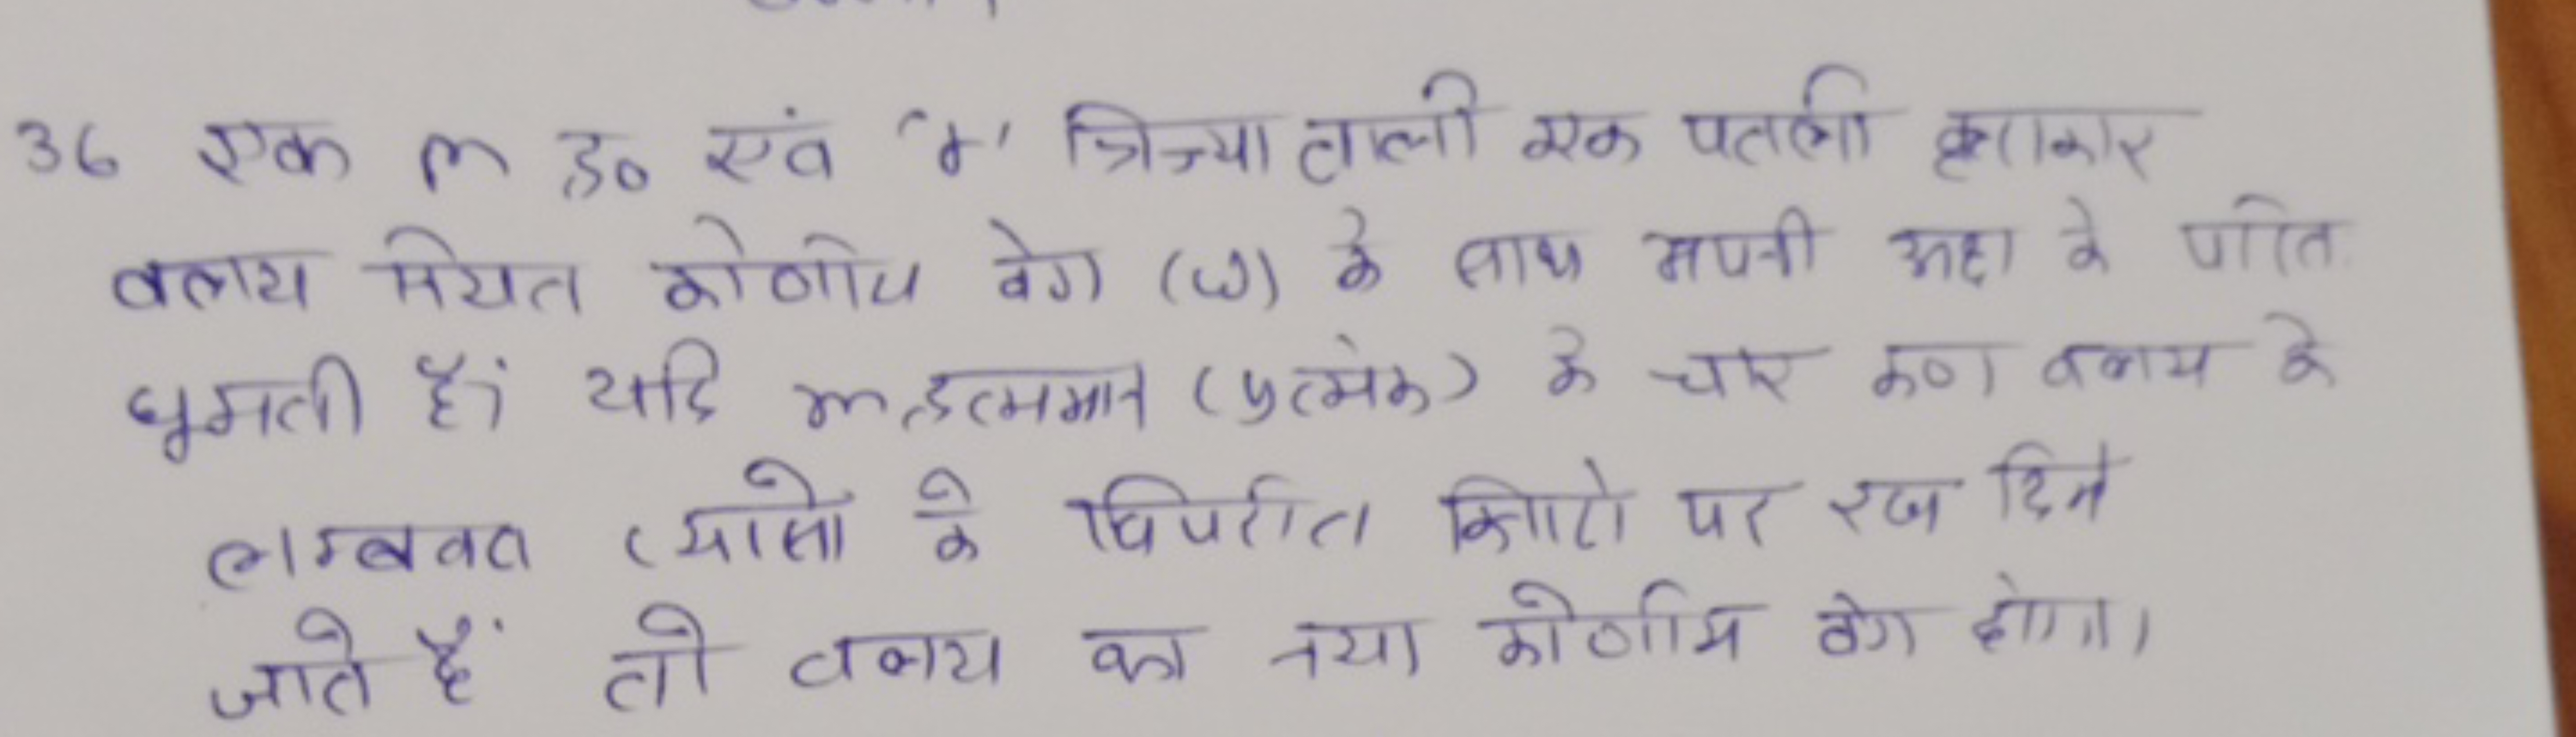 36 एक m द्र० एवं 'r' त्रिज्या वाली एक पतली वृत्ताकार
वलय नियत कोणीय वेग (ω) के साथ अपनी अक्ष के परित
घूमती है। यदि m द्रव्यमान (प्रत्येक) के चार कण वलय के
लम्बवत व्यासो के विपरीत किनारो पर रख दिये
जाते है तो वलय का नया कोणीय वेग होगा।